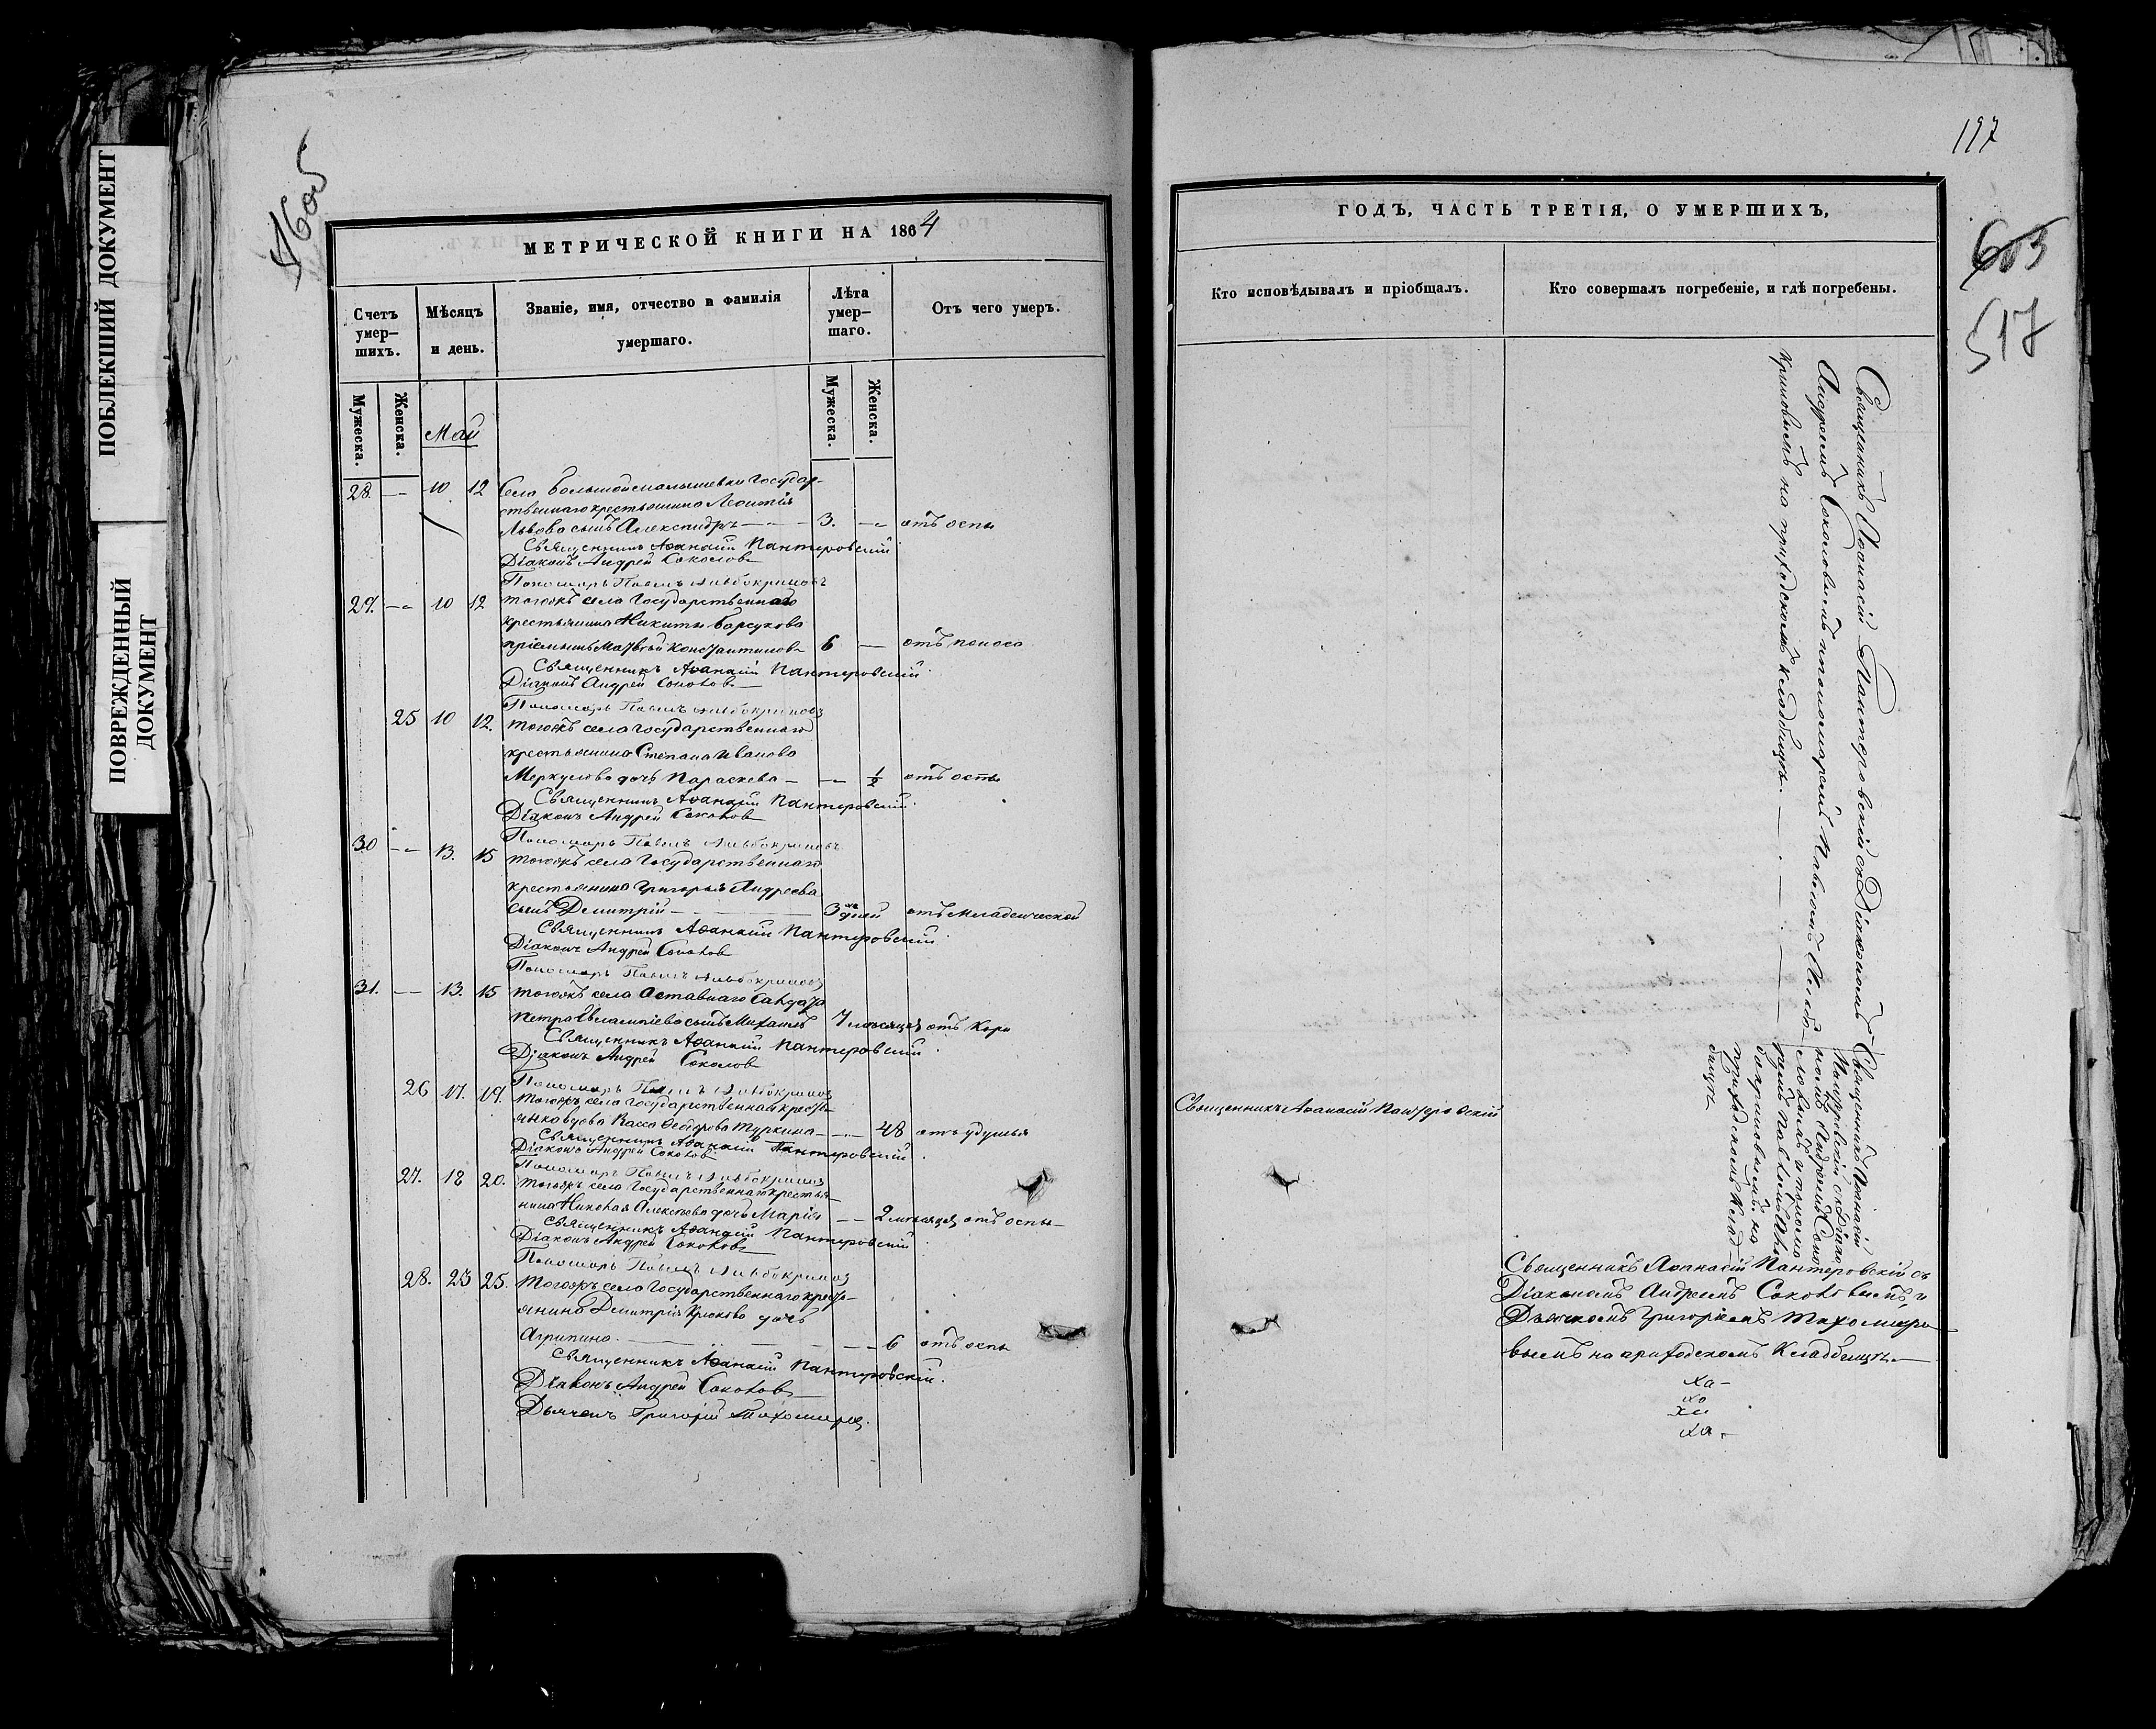 ПОБЛЕКШИЙ ДОКУМЕНТ
ПОВРЕЖДЕННЫЙ
ДОКУМЕНТ
МЕТРИЧЕСКОЙ КНИГИ НА 1864
Счетъ умер-шихъ.
Мѣсяцъ и день.
Званіе, имя, отчество и фамилія умершаго.
Лѣта умер-шаго.
Отъ чего умеръ.
Мужеска.
Женска.
Май
Мужеска.
Женска.
28. 10 12 Села Большой Малышевки Государ-
ственнаго крестьянина Леонтія
Львова сынъ Александръ 3. отъ оспы
Священникъ Аѳанасій Пантеровскій
Діаконъ Андрей Соколовъ
Пономарь Павелъ
29. 10 12 Тогожъ села Государственнаго
крестьянина Никиты Барсукова
пріемышъ Матвѣй Константиновъ 6 отъ поноса
Священникъ Аѳанасій Пантеровскій
Діаконъ Андрей Соколовъ
Пономарь Павелъ
25 10 12. Тогожъ села Государственнаго
крестьянина Степана Иванова
Меркулова дочь Параскева 1/2 отъ оспы
Священникъ Аѳанасій Пантеровскій
Діаконъ Андрей Соколовъ
Пономарь Павелъ
30 13. 15 Тогожъ села Государственнаго
крестьянина Григорья Андреева
сынъ Димитрій 3 дней отъ младенческой
Священникъ Аѳанасій Пантеровскій
Діаконъ Андрей Соколовъ
Пономарь Павелъ
31. 13. 15 Тогожъ села Отставнаго Солдата
Петра Евлампіева сынъ Михаилъ 7 мѣсяцев отъ Кори
Священникъ Аѳанасій Пантеровскій
Діаконъ Андрей Соколовъ
Пономарь Павелъ
26 17. 19. Тогожъ села Государственная кресть-
янка вдова Ѳедорова Туркина 48 отъ удушья
Священникъ Аѳанасій Пантеровскій
Діаконъ Андрей Соколовъ
Пономарь Павелъ
27. 18 20. Тогожъ села Государственнаго крестья-
нина Николая Алексѣева дочь Марія 2 мѣсяцев отъ оспы
Священникъ Аѳанасій Пантеровскій
Діаконъ Андрей Соколовъ
Пономарь Павелъ
28. 23 25. Тогожъ села Государственнаго кресть-
янина Димитрія Крюкова дочь
Агрипина. 6 отъ оспы
Священникъ Аѳанасій Пантеровскій.
Діаконъ Андрей Соколовъ
Дьячекъ Григорій Тихомировъ
197
605
517
ГОДЪ, ЧАСТЬ ТРЕТІЯ, О УМЕРШИХЪ,
Кто исповѣдывалъ и пріобщалъ.
Кто совершалъ погребеніе, и гдѣ погребены.
Священникъ Аѳанасій Пантеровскій съ Діакономъ
Андреемъ Соколовымъ и пономаремъ Павломъ
на приходскомъ кладбищѣ.
Священникъ Аѳанасій Пантеровскій
Священникъ Аѳанасій
Пантеровскій съ Діако-
номъ Андреемъ Соко-
ловымъ и понома-
ремъ Павломъ
на
приходскомъ клад-
бищѣ
Священникъ Аѳанасій Пантеровскій съ
Діакономъ Андреемъ Соколовымъ и
Дьячкомъ Григоріемъ Тихомиро-
вымъ на приходскомъ Кладбищѣ.